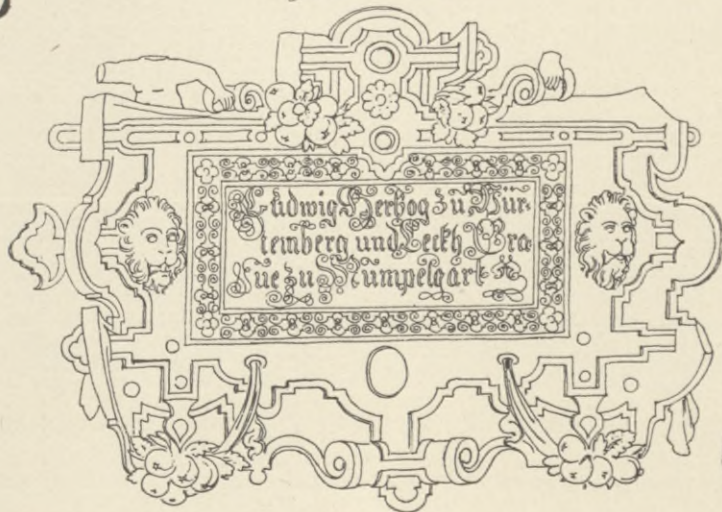 Ludwig Hertzog zu Wür-
temberg und Teckh Gra
füe zu Mümpelgart